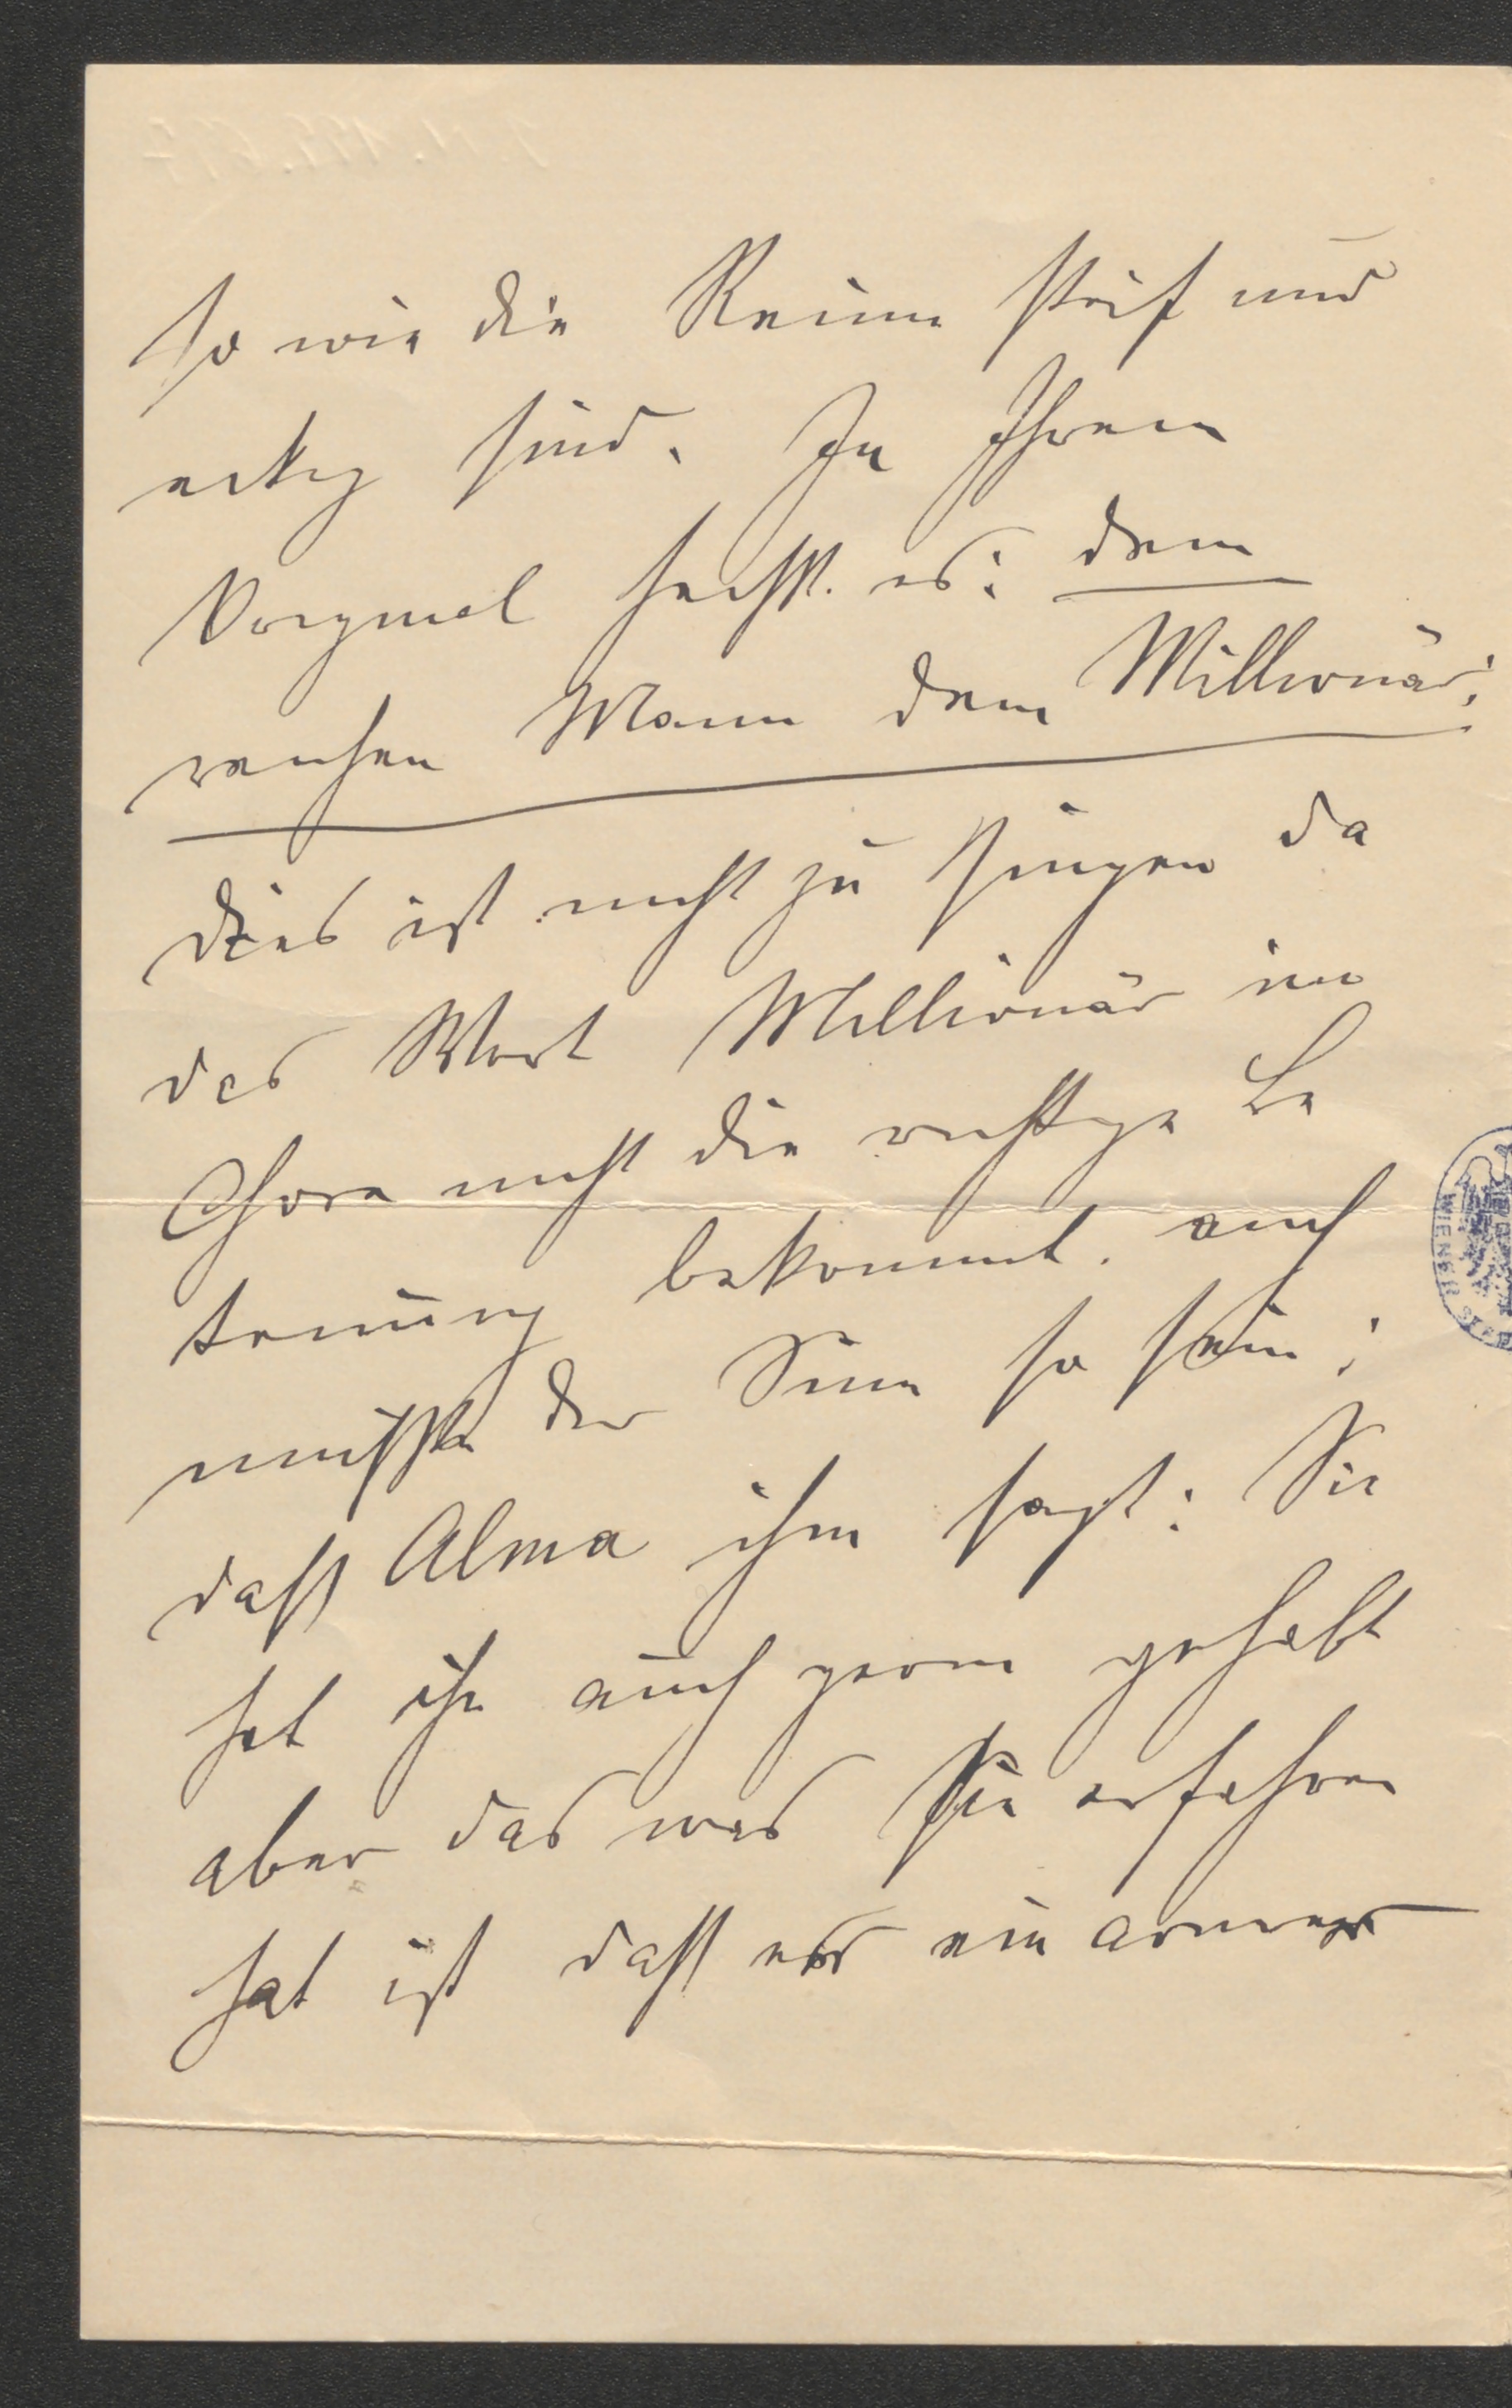 so wie die Reime steif und
eckig sind. In Ihrem
Original heißt es: dem
reichen Mann dem Millionär;
dies ist nicht zu singen da
das Wort Millionär im
Chore nicht die richtige Be
tonung bekommt. auch
müßte der Sinn so sein;
daß Alma ihm sagt: Sie
hat ihn auch gern gehabt
aber das was sie erfahren
hat ist daß er ein armer
WIENER